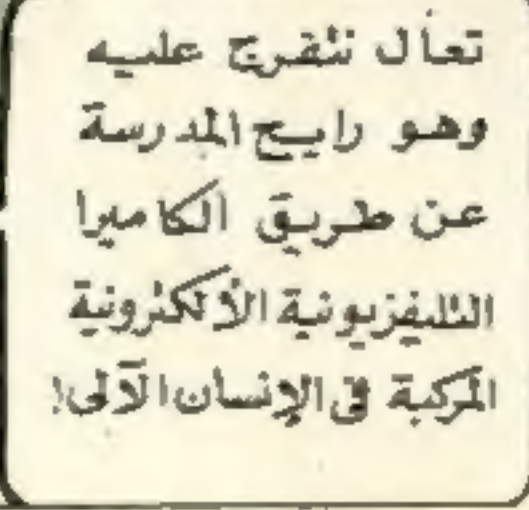 تعال نتفرج عليه
وهو رايح المدرسة
عن طريق الكاميرا
التليفزيونية الألكترونية
المركبة في الإنسان الآلى!